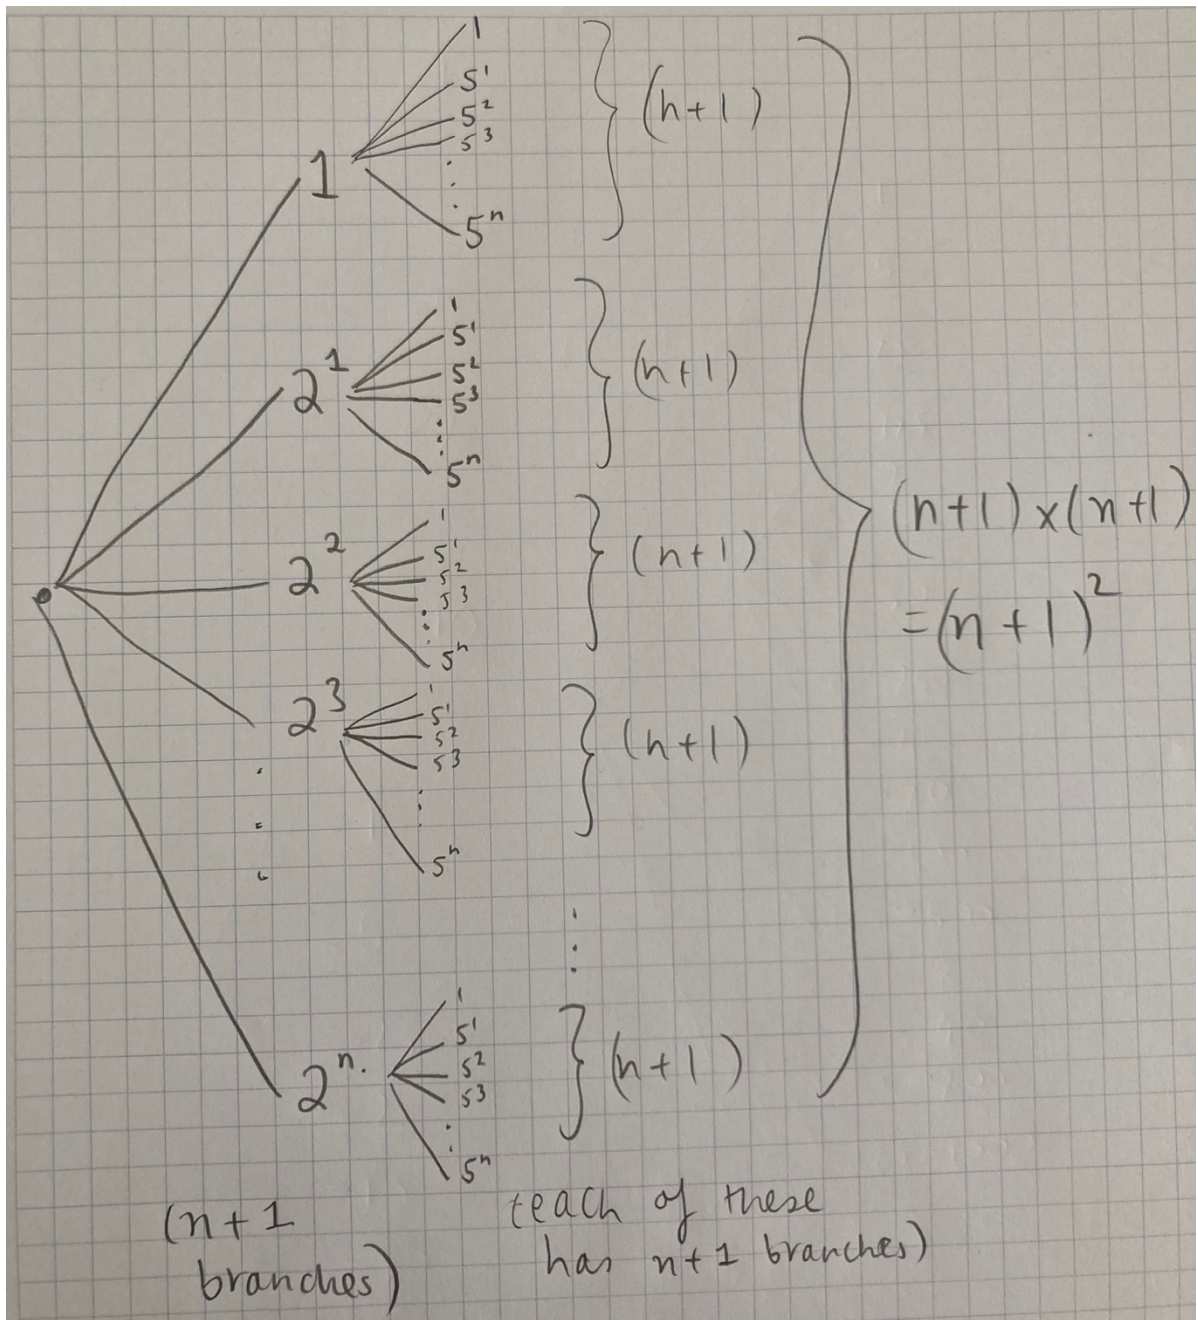 1
5¹
5²
5³
⋮
5ⁿ
} (n+1)
1
1
5¹
5²
5³
⋮
5ⁿ
} (n+1)
2¹
1
5¹
5²
5³
⋮
5ⁿ
} (n+1)
2²
1
5¹
5²
5³
⋮
5ⁿ
} (n+1)
2³
⋮
⋮
1
5¹
5²
5³
⋮
5ⁿ
} (n+1)
2ⁿ.
} (n+1)×(n+1)
=(n+1)²
(n+1
branches)
(each of these
has n+1 branches)